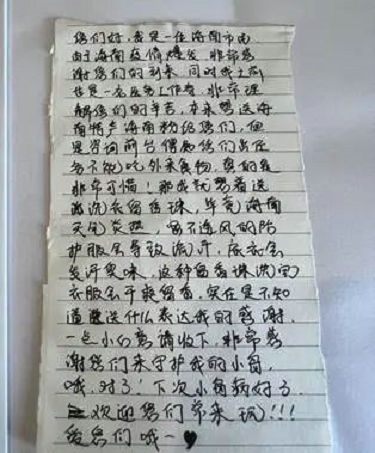 您们好,我是一位海南市民
由于海南疫情爆发,非常感
谢您们的到来,同时我之前
也是一名医务工作者,非常理
解您们的辛苦,本来想送海
南特产海南粉给您们,但
是咨询前台得知您们
不能吃外来食物,真的是
非常可惜!那我就想着送
洗衣留香珠,毕竟海南
天气炎热,密不透风的防
护服会导致流汗,底衣会
发汗臭味,这种留香珠洗完
衣服会开凝留香,实在是不知
道送什么表达我的感谢,
一点小心意请收下,非常感
谢您们来守护我的小岛
哦,对了!下次小岛病好了
欢迎您们常来玩!!!
爱您们哦~♥